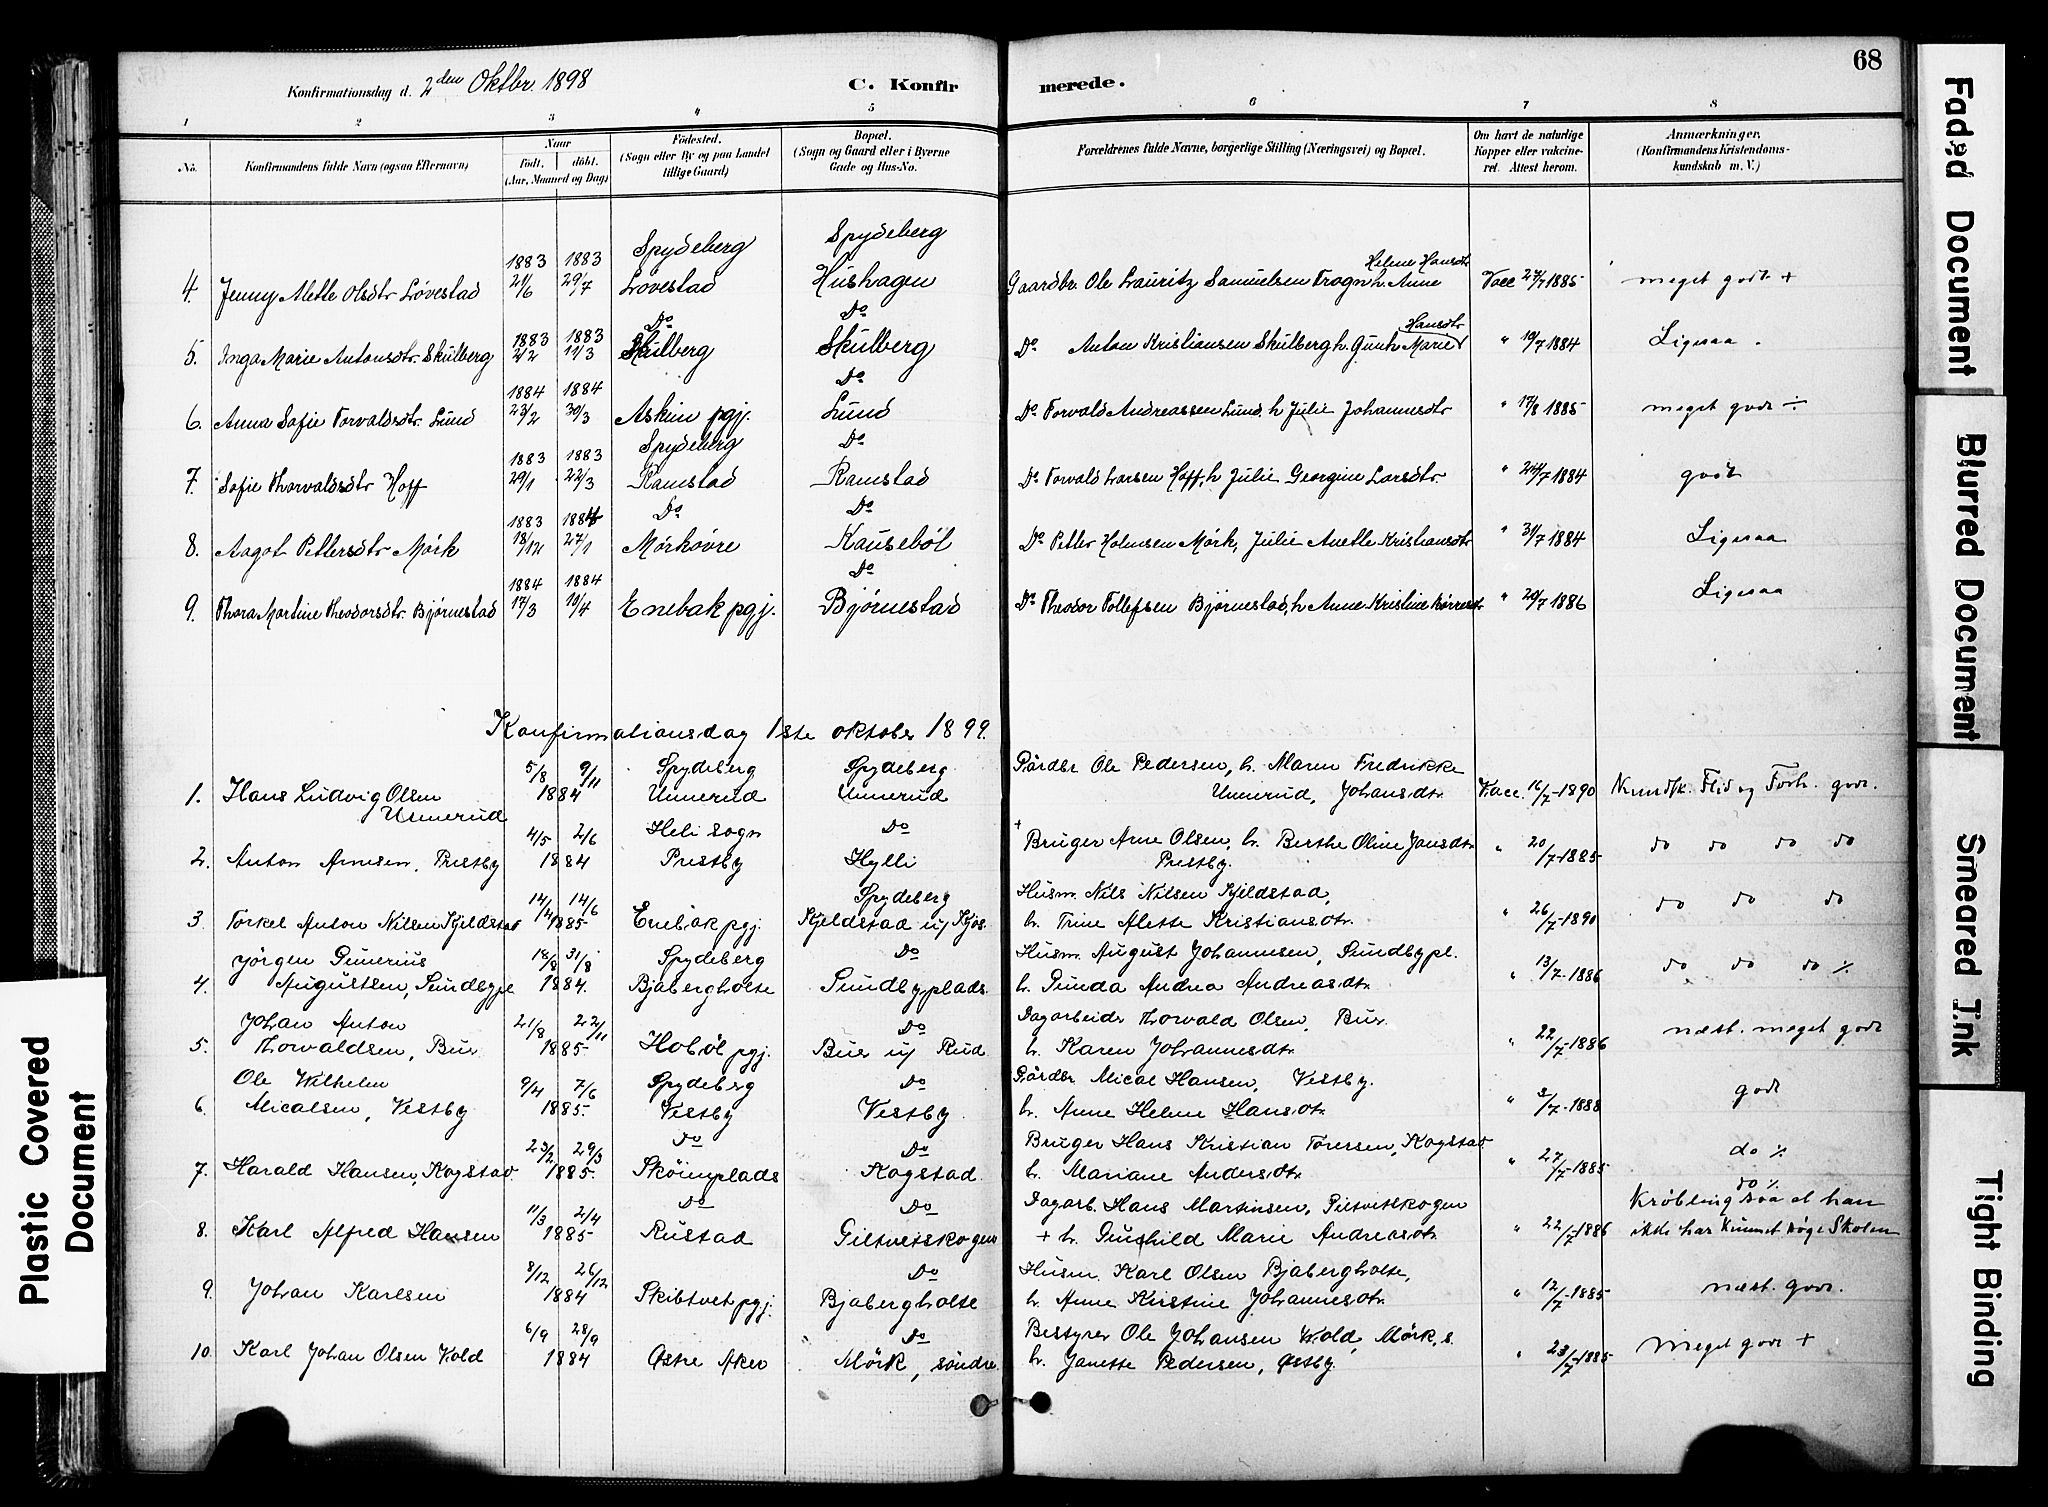 68
Konfirmationsdag d. 2den Oktbr. 1898
C. Konfirmerede.
1 2 3 4 5 6 7 8
No. Konfirmandens fulde Navn (ogsaa Efternavn) Naar født. døbt. (Aar, Maaned og Dag) Fødested. (Sogn eller By og paa Landet tillige Gaard) Bopæl. (Sogn og Gaard eller i Byerne Gade og Hus-No. Forældrenes fulde Navne, borgerlige Stilling (Næringsvei) og Bopæl. Om havt de naturlige Kopper eller vakcineret. Attest herom. Anmærkninger. (Konfirmandens Kristendomskundskab m. V.)
1883 1883 Spydeberg Spydeberg Helene Hansdtr
4. Jenny Alette Olsdtr Løvestad 21/6 29/7 Løvestad Hushagen Gaardbr. Ole Lauritz Samuelsen Trogn h. Anne Vacc 27/7 1885 meget godt +
1883 1883 Do Do Hansdtr
5. Inga Marie Antonsdtr. Skulberg 2/2 11/3 Skulberg Skulberg Do Anton Kristiansen Skulberg h. Gunh. Marie " 19/7 1884 Ligesaa .
1884 1884 Do
6. Anna Sofie Torvaldsdtr. Lund 23/2 30/3 Askim pgj. Lund Do Torvald Andreassen Lund, h Julie Johannesdtr " 17/8 1885 meget godt ÷
1883 1883 Spydeberg Do
7. Sofie Thorvaldsdtr Hoff 29/1 22/3 Ramstad Ramstad Do Torvald Larsen Hoff, h Julie Georgine Larsdtr. " 24/7 1884 godt
1883 1884 Do Do
8. Aagot Pettersdtr Mørk 18/12 27/1 Mørkøvre Kausebøl Do Petter Holmsen Mørk, Julie Anette Kristiansdtr " 31/7 1884 Ligesaa
1884 1884 Do
9. Thora Martine Theodorsdtr. Bjørnestad 17/3 19/4 Enebak pgj. Bjørnestad Do Theodor Tollefsen Bjørnestad, h Anne Kristine " 20/7 1886 Ligesaa
Konfirmationsdag 1ste oktober 1899.
5/8 9/11 Spydeberg Spydeberg Gårdbr Ole Pedersen, h. Maren Fredrikke
1. Hans Ludvig Olsen Unnerud 1884 Unnerud Unnerud Unnerud, Johansdtr. Vacc. 16/7-1890 Kundsk. Flid og Forh. godt.
4/5 2/6 Heli sogn Do + Bruger Arne Olsen, h. Berthe Oline Jansdtr
2. Anton Arnesen, Prestby 1884 Prestby Hylli Prestby. " 20/7-1885 do do do do
14/4 14/6 Spydeberg Husm. Nils Nilsen Kjeldstad,
3 Torkel Anton Nilsen Kjeldstad 1885 Enebak pgj. Kjeldstad u/ Kjos. h. Trine Alette Kristiansdtr. " 26/7-1890 do do do
Jörgen Gunerius 18/8 31/8 Spydeberg Do Husm. August Johannesen, Sundbypl.
4. Augustsen, Sundbypl 1884. Bjabergholte Sundbyplads. h. Gunda Andrea Andreasdtr. " 13/7-1886 do do do ٪
Johan Anton 21/8 22/11 Do Dagarbeider Thorvald Olsen, Bur.
5. Thorvaldsen, Bur 1885 Hobøl pgj. Bur u/ Rud h. Karen Johannesdtr. " 22/7-1886 næst. meget godt
Ole Wilhelm 9/4 7/6 Spydeberg Do Gårdbr Micael Hansen, Vestby.
6. Micalsen, Vestby 1885. Vestby Vestby. h. Anne Helene Hansdtr. " 2/7-1888 godt
23/2 29/3 Do Do Bruger Hans Kristian Toressen, Kogstad
7. Harald Hansen, Kogstad 1885. Sköienplads Kogstad. h. Mariane Andersdtr. " 27/7-1885 do ٪
11/3 2/4 Do Do Dagarb. Hans Martinsen, Giltvetskogen do ٪ Kröbling saa at han
8. Karl Alfred Hansen 1885 Rustad Giltvetskogen + h. Gunhild Marie Andreasdtr. " 22/7-1886 ikke har kunnet søge Skolen
8/12 26/12 Do Husm. Karl Olsen Bjabergholte,
9. Johan Karlsen 1884 Skibtvet pgj. Bjabergholte h. Anne Kirstine Johannesdtr. " 12/7-1885 næst. godt.
6/9 28/9 Do Bestyrer Ole Johansen Wold, Mørk, s.
10. Karl Johan Olsen Wold 1884 Østre Aker Mørk, søndre h. Janette Pedersen, Østby. " 23/7-1885 Meget godt +
Plastic Covered Document
Faded Document
Blurred Document
Smeared Ink
Tight Binding